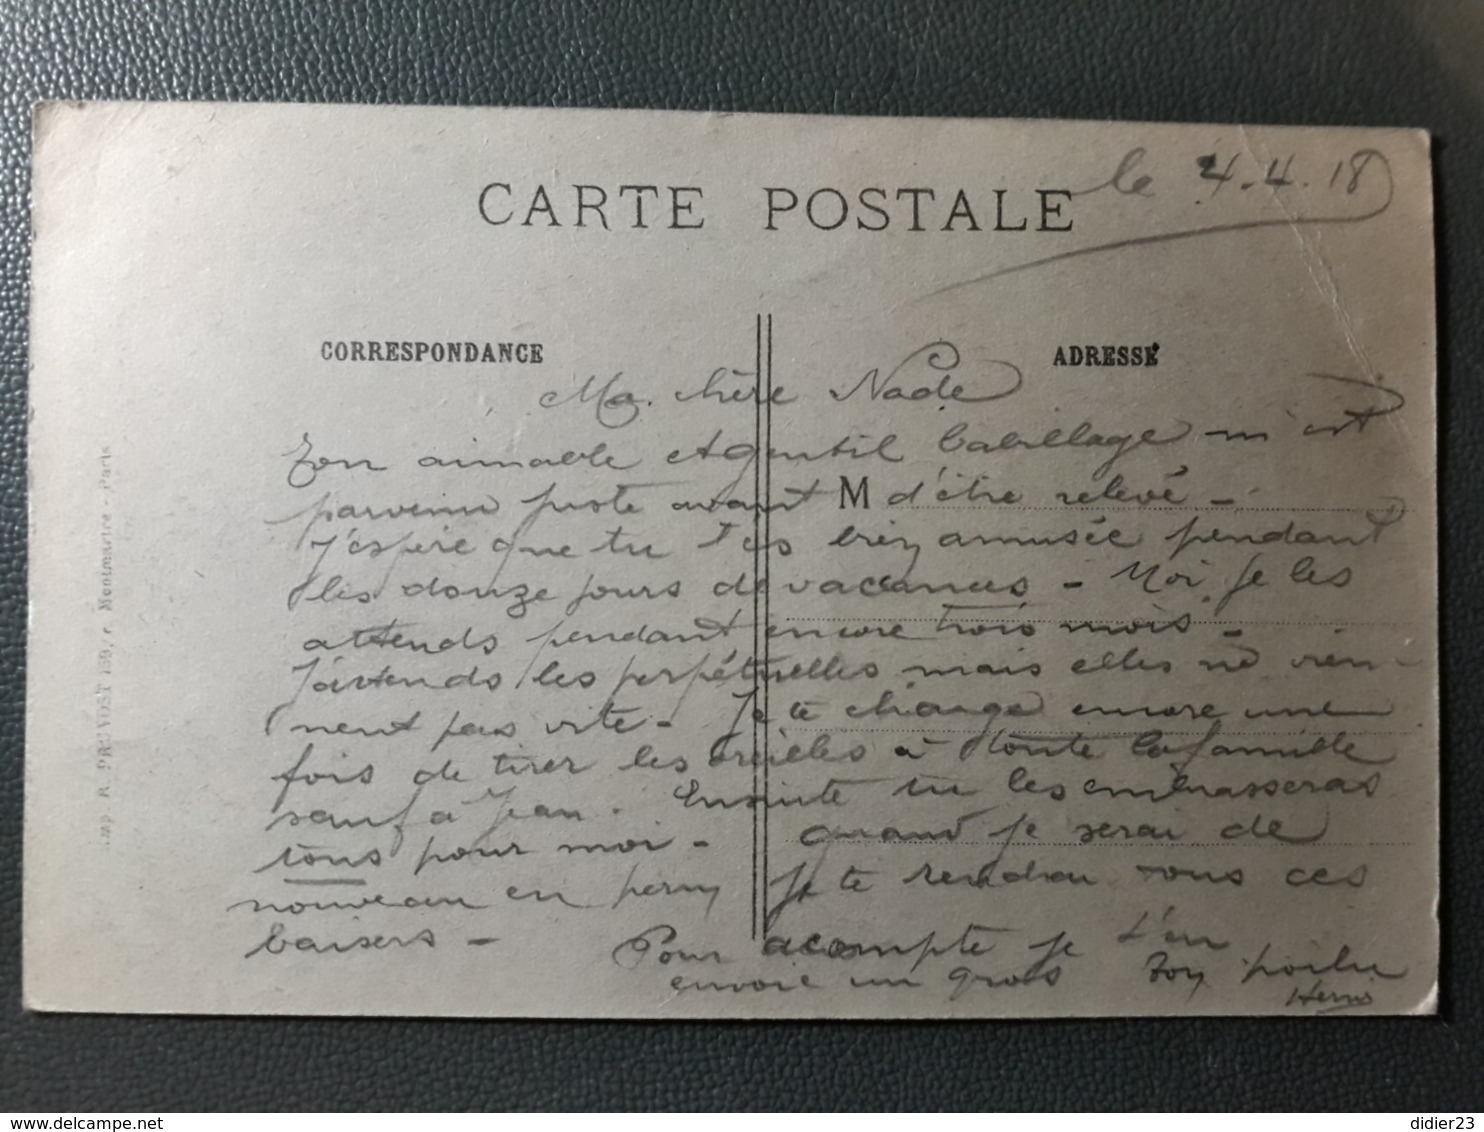 le 4.4.18
CARTE POSTALE
CORRESPONDANCE
ADRESSE
Ma chère Nade
Ton aimable et gentil babillage m'est
parvenu juste avant M d'être relevé -
J'espère que tu t'es bien amusée pendant
les douze jours de vacances - Moi, je les
attends pendant encore trois mois -
J'attends les perpétuelles mais elles ne vien-
nent pas vite - Je te charge encore une
fois de tirer les oreilles à toute la famille
sauf à Jean. Ensuite tu les embrasseras
tous pour moi - quand je serai de
nouveau en perm je te rendrai tous ces
baisers - Pour acompte je t'en
envoie un gros Ton poilu
Imp. R. PROVOST 159, r. Montmartre - Paris
delcampe.net
didier23